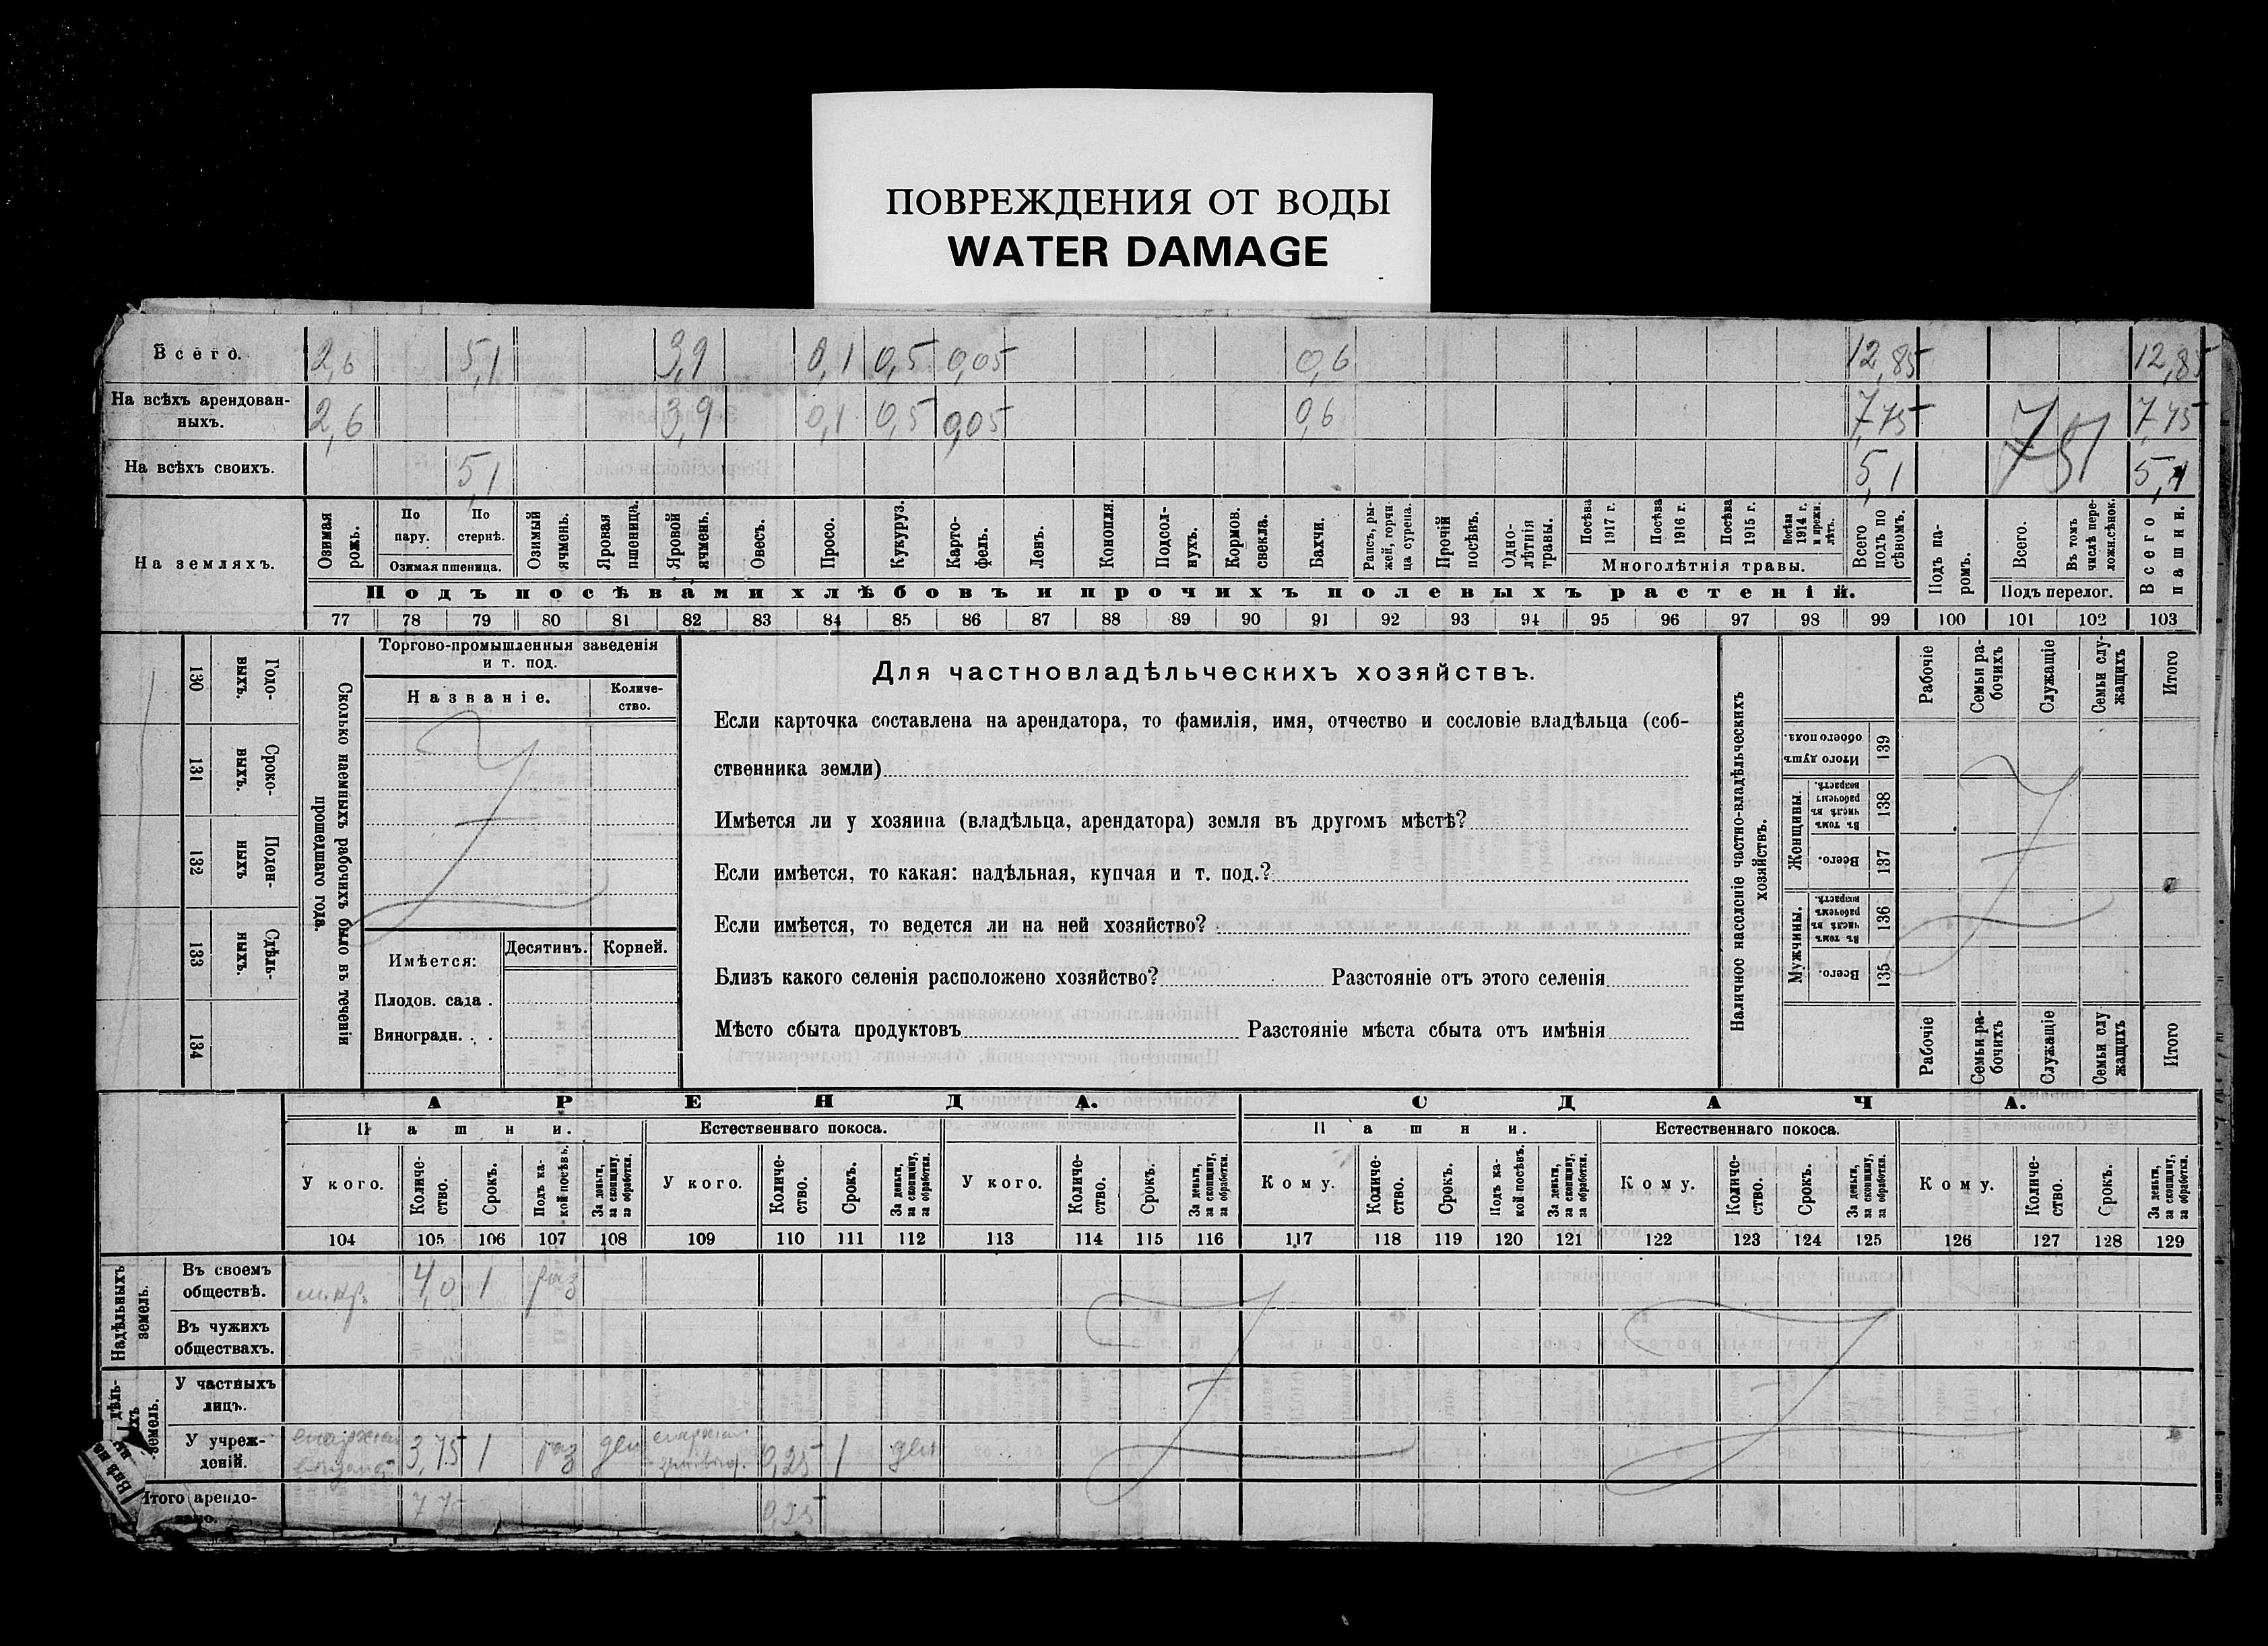 ПОВРЕЖДЕНИЯ ОТ ВОДЫ
WATER DAMAGE
Всего. 2,6 5,1 3,9 0,1 0,5 0,05 0,6 12,85 12,85
На всѣхъ арендован-
ныхъ. 2,6 3,9 0,1 0,5 0,05 0,6 7,75 7,75
На всѣхъ своихъ. 5,1 5,1 5,1
751
На земляхъ.
Озимая рожь.
По пару.
По стернѣ.
Озимая пшеница.
Озимый ячмень.
Яровая пшеница.
Яровой ячмень.
Овесъ.
Просо.
Кукуруз.
Карто-
фель.
Ленъ.
Конопля.
Подсол-
нухъ.
Кормов. свекла.
Бахчи.
Рапсъ, ры-
жей, горчи
ца сурепа.
Прочій посѣвъ.
Одно-
лѣтнія травы.
Посѣва 1917 г.
Посѣва 1916 г.
Посѣва 1915 г.
Посѣва 1914 г. и прежн. лѣтъ.
Многолѣтнія травы.
Всего подъ по сѣвомъ.
Подъ па-
ромъ.
Всего.
Въ томъ числѣ пере-
ложн.сѣнок.
Подъ перелог.
Всего пашни.
Подъ посѣвами хлѣбовъ и прочихъ полевыхъ растеній.
77 78 79 80 81 82 83 84 85 86 87 88 89 90 91 92 93 94 95 96 97 98 99 100 101 102 103
130 Годо-
выхъ.
131 Сроко-
выхъ.
132 Поден-
ныхъ
133 Сдѣль-
ныхъ.
134
Сколько наемныхъ рабочихъ было въ теченіи
прошедшаго года.
Торгово-промышленныя заведенія
и т. под.
Названіе.
Количе-
ство.
Имѣется:
Десятинъ.
Корней.
Плодов. сада .
Виноградн. . .
Для частновладѣльческихъ хозяйствъ.
Если карточка составлена на арендатора, то фамилія, имя, отчество и сословіе владѣльца (соб-
ственника земли)
Имѣется ли у хозяина (владѣльца, арендатора) земля въ другомъ мѣстѣ?
Если имѣется, то какая: надѣльная, купчая и т. под.?
Если имѣется, то ведется ли на ней хозяйство?
Близъ какого селенія расположено хозяйство? Разстояніе отъ этого селенія
Мѣсто сбыта продуктовъ Разстояніе мѣста сбыта отъ имѣнія
Наличное населеніе частно-владѣльческихъ
хозяйствъ.
Рабочіе
Семьи ра-
бочихъ
Служащіе
Семьи слу-
жащихъ
Итого
Итого душъ обоего пола. 139
Женщины.
Въ томъ числѣ въ рабочемъ возрастѣ. 138
Всего. 137
Мужчины.
Въ томъ числѣ въ рабочемъ возрастѣ. 136
Всего. 135
Рабочіе
Семьи ра-
бочихъ
Служащіе
Семьи слу
жащихъ
Итого
АРЕНДА.
СДАЧА.
Пашни.
Естественнаго покоса.
Пашни.
Естественнаго покоса.
У кого.
Количе-
ство.
Срокъ.
Подъ ка-
кой посѣвъ.
За деньги, за скопщину, за обработки.
У кого.
Количе-
ство.
Срокъ.
За деньги, за скопщину, за обработки.
У кого.
Количе-
ство.
Срокъ.
За деньги, за скопщину, за обработки.
Кому.
Количе-
ство.
Срокъ.
Подъ ка-
кой посѣвъ.
За деньги, за скопщину, за обработки.
Кому.
Количе-
ство.
Срокъ.
За деньги, за скопщину, за обработки.
Кому.
Количе-
ство.
Срокъ.
За деньги, за скопщину, за обработки.
104 105 106 107 108 109 110 111 112 113 114 115 116 117 118 119 120 121 122 123 124 125 126 127 128 129
Надѣльныхъ земель.
Въ своемъ
обществѣ. 4,0 1 раз
Въ чужихъ
обществахъ.
земель.
У частныхъ
лицъ.
У учреж-
деній. 3,75 1 раз ден 0,25 1 ден
Итого арендо-
вано. 7,75 0,25